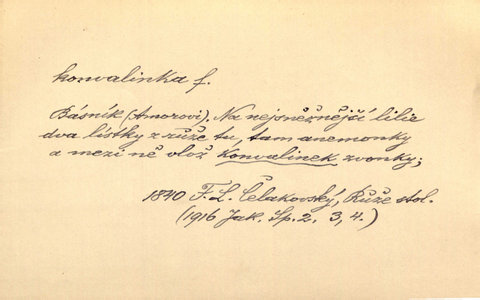 konvalinka f.
Básník (Amorovi). Na nejsněžnější lilie
dva lístky z růže tu, tam anemonky
a mezi ně vlož konvalinek zvonky;
1840 F. L. Čelakovský, Růže stol.
(1916 Jak. Sp. 2. 3, 4.)